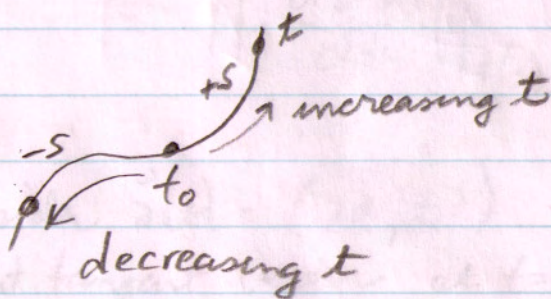 t
+s
increasing t
-s
t₀
decreasing t